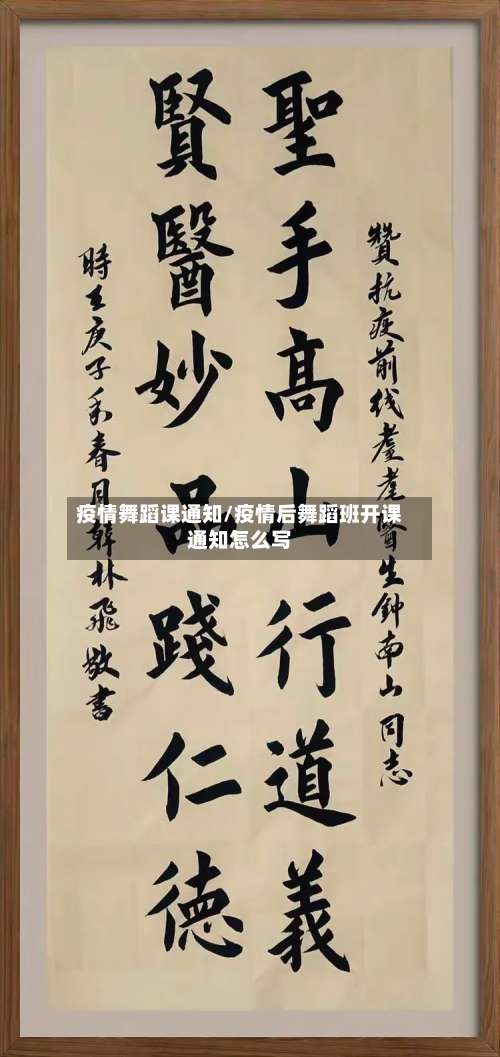 贊抗疫前线耄耋醫生鈡南山同志
聖手髙山行道義
賢醫妙品踐仁德
時在庚子季春月韓林飛敬書
疫情舞蹈课通知/疫情后舞蹈班开课
通知怎么写